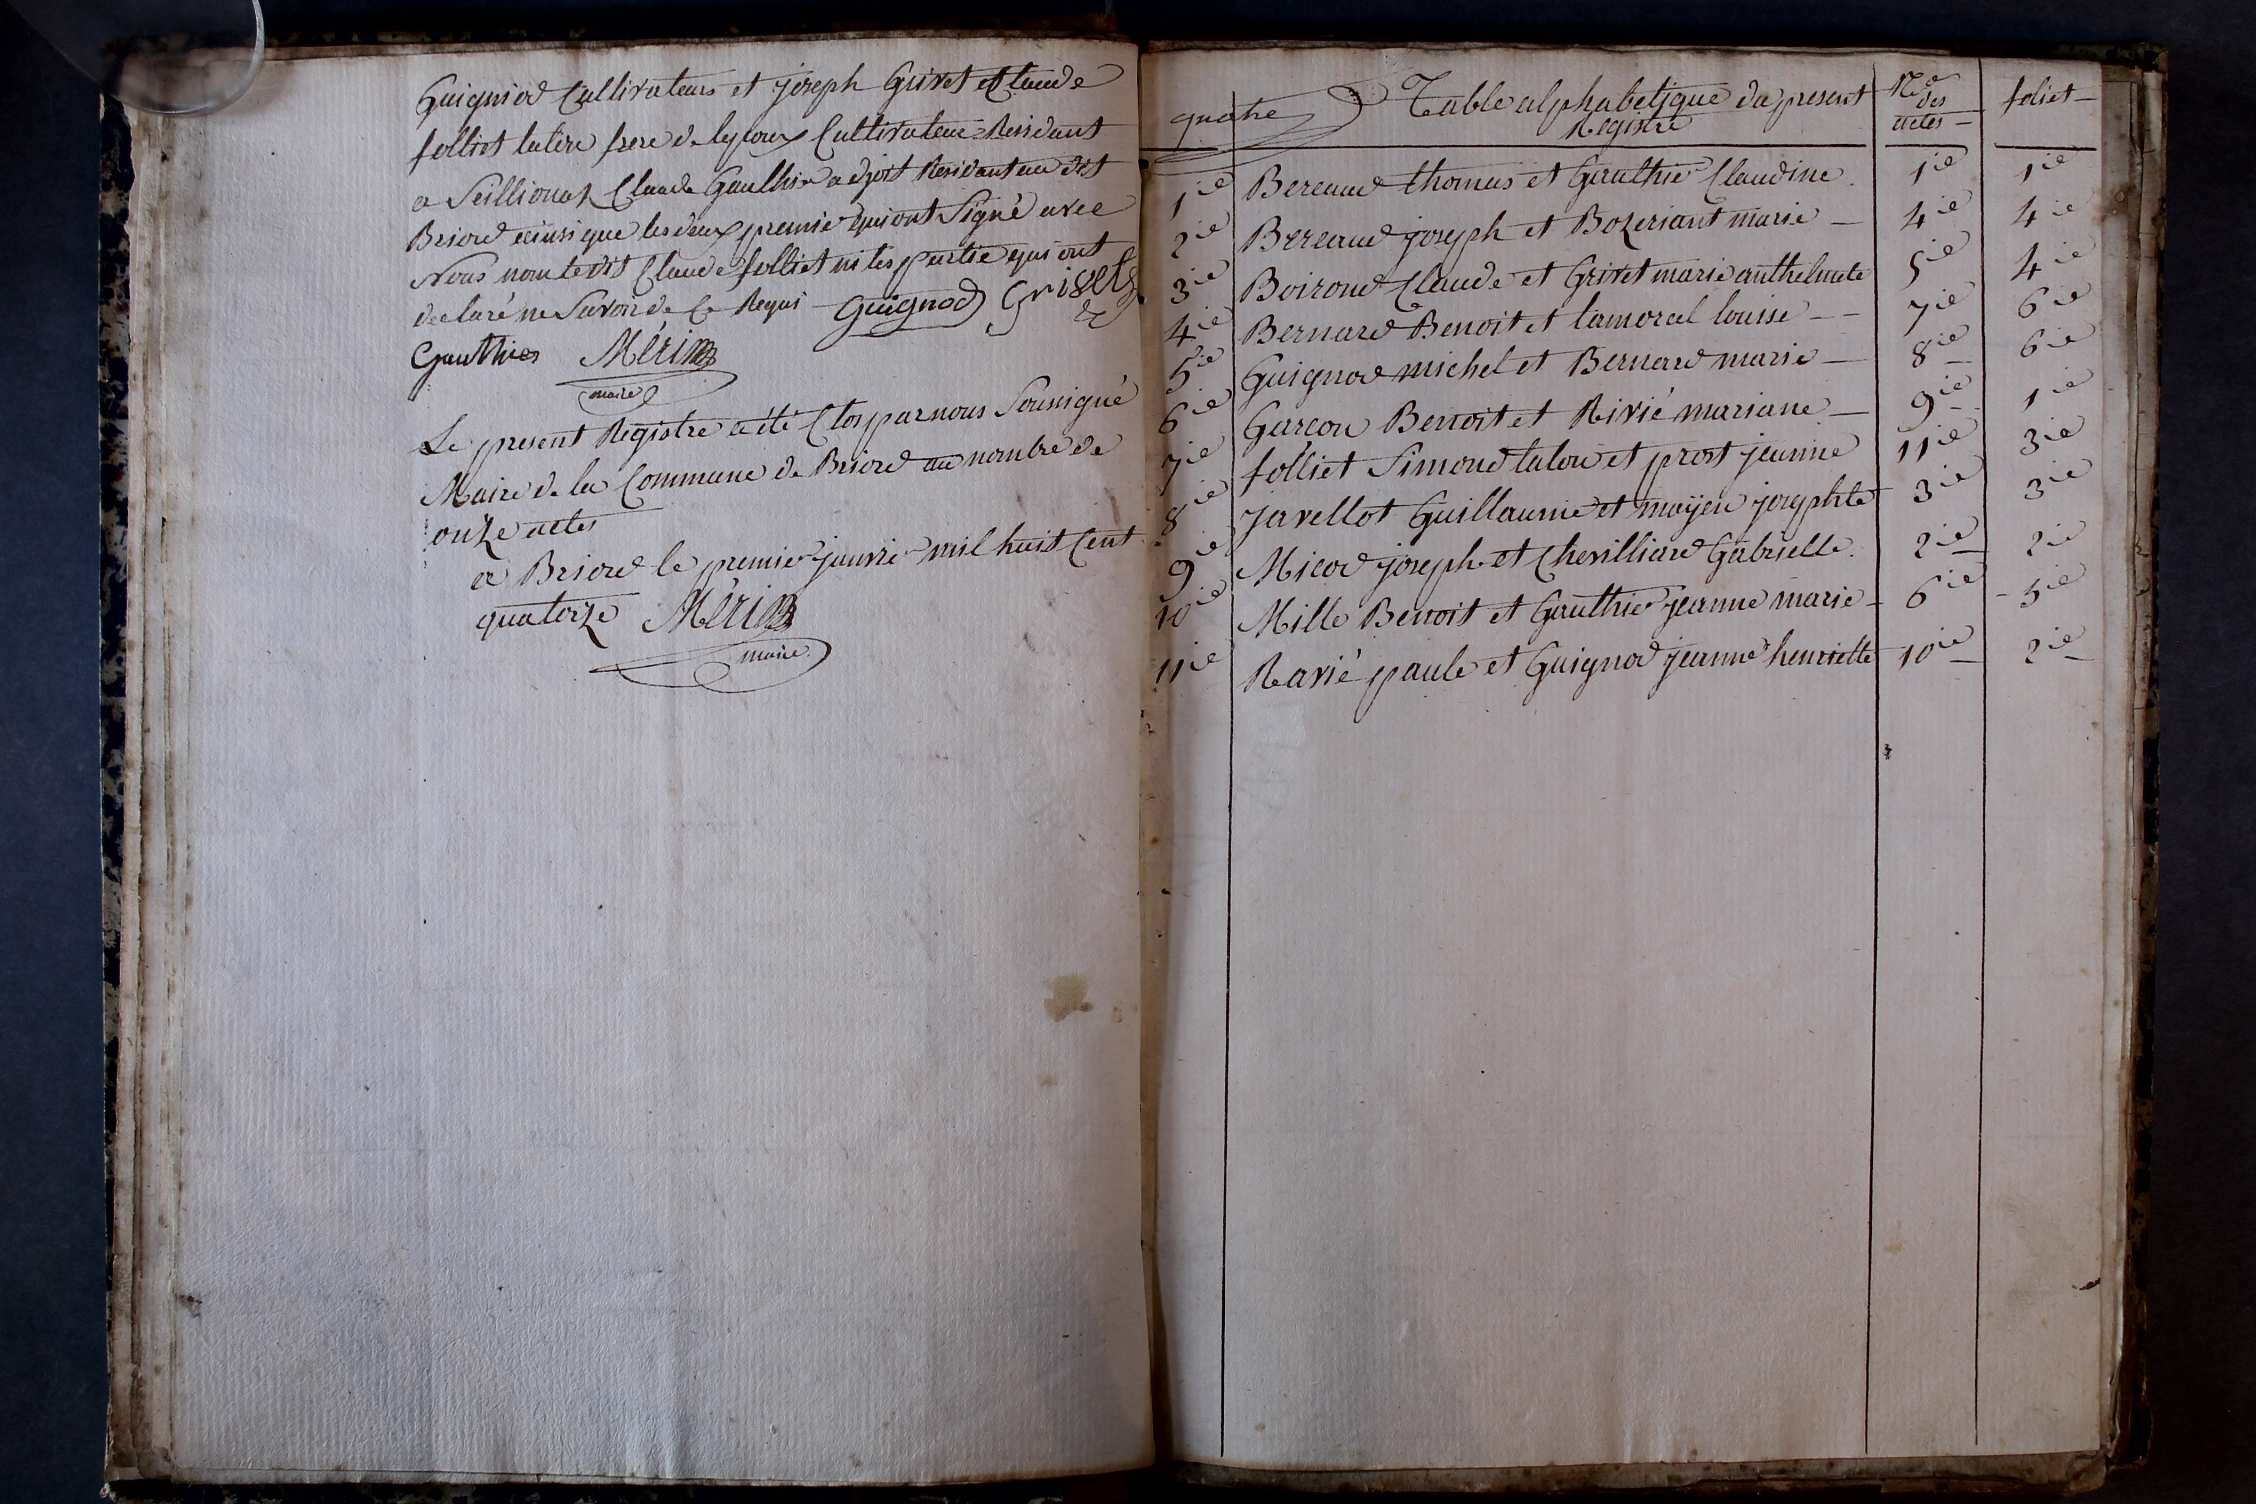 Guigniod Cultivateurs et joseph Grivet et Claude
folliet frere de lepoux Cultivateur Residant
a Seillionas Claude Gauthier adjoit Residant au dit
Briord ainsi que les deux premie qui ont Signé avec
Nous non ledit Claude folliet ni les partie qui ont
declaré ne Savoir de Ce Requi Guignod Grivet
Gauthier Mérin
maire
Le present Registre a été Clos par nous Sousigné
Maire de la Commune de Briord au nombre de
onze actes
a Briord le premier janvie mil huit Cent
quatorze Mérin
maire
quatre Table alphabetique du present Registre Nos des actes foliet
1ie Bereaud thomas et Gauthie Claudine 1ie 1ie
2ie Bereaud joseph et Bozeriant marie 4ie 4ie
3ie Boiroud Claude et Grivet marie anthelmete 5ie 4ie
4ie Bernard Benoit et lamoral louise 7ie 6ie
5ie Guignod michel et Bernard marie 8ie 6ie
6ie Garcon Benoit et Rivié mariane 9ie 1ie
7ie folliet Simond et prost jeanne 11ie 3ie
8ie javellot Guillaume et moyen josephte 3ie 3ie
9ie Micod joseph et Chevilliard Gabrielle 2ie 2ie
10ie Mille Benoit et Gauthie jeanne marie 6ie 5ie
11ie Ravié paule et Guignod jeanne henriette 10ie 2ie